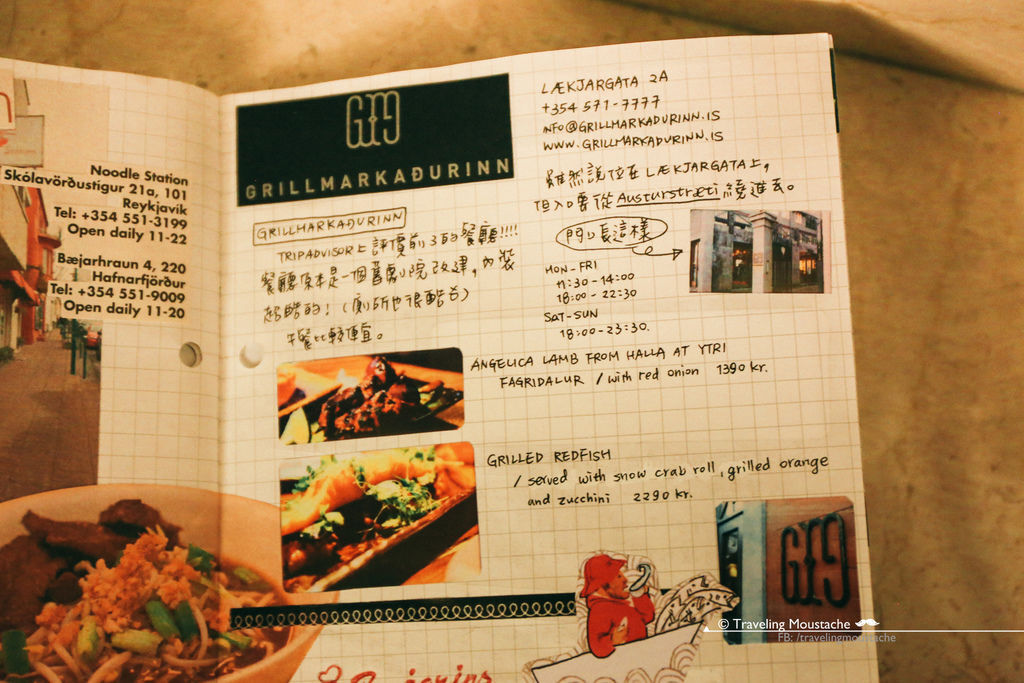 Noodle Station
Skólavörðustigur 21a, 101
Reykjavík
Tel: +354 551-3199
Open daily 11-22
Bæjarhraun 4, 220
Hafnarfjörður
Tel: +354 551-9009
Open daily 11-20
GRILLMARKAÐURINN
GRILLMARKAÐURINN
TRIPADVISOR上評價前3的餐廳!!!!
餐廳原本是一個舊劇院改建,內裝
超酷的!(廁所也很酷)
午餐比較便宜。
LÆKJARGATA 2A
+354 571-7777
INFO@GRILLMARKAÐURINN.IS
WWW.GRILLMARKAÐURINN.IS
雖然說位在LÆKJARGATA上,
但入口要從Austurstræti繞進去。
門口長這樣
MON-FRI
11:30-14:00
18:00-22:30
SAT-SUN
18:00-23:30.
ANGELICA LAMB FROM HALLA AT YTRI
FAGRIDALUR /with red onion 1390 kr.
GRILLED REDFISH
/ served with snow crab roll, grilled orange
and zucchini 2290 kr.
© Traveling Moustache
FB: /travelingmoustache